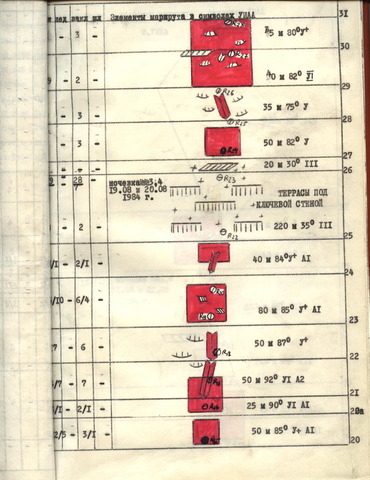 закл ил Элементы маршрута в символах УИАА
31
- 3 - 45 м 80° У+
30
9 - 2 - 40 м 82° УI
29
R26
- 3 35 м 75° У
R25
28
- 3 50 м 82° У
27
- 4 - 20 м 30° III
26
R23
28
7
ночевка №3,4
19.08 и 20.08
1984 г.
ТЕРРАСЫ ПОД
КЛЮЧЕВОЙ СТЕНОЙ
- 2 220 м 35° III
R22
25
/I - 2/I 40 м 84° У+ АI
24
/I0 - 6/4 80 м 85° У+ АI
23
7 - 6 50 м 87° У+
22
/7 - 7 50 м 92° УI А2
21
/I - 2/I 25 м 90° УI АI
20а
2/5 - 3/I 50 м 85° У+ АI
20